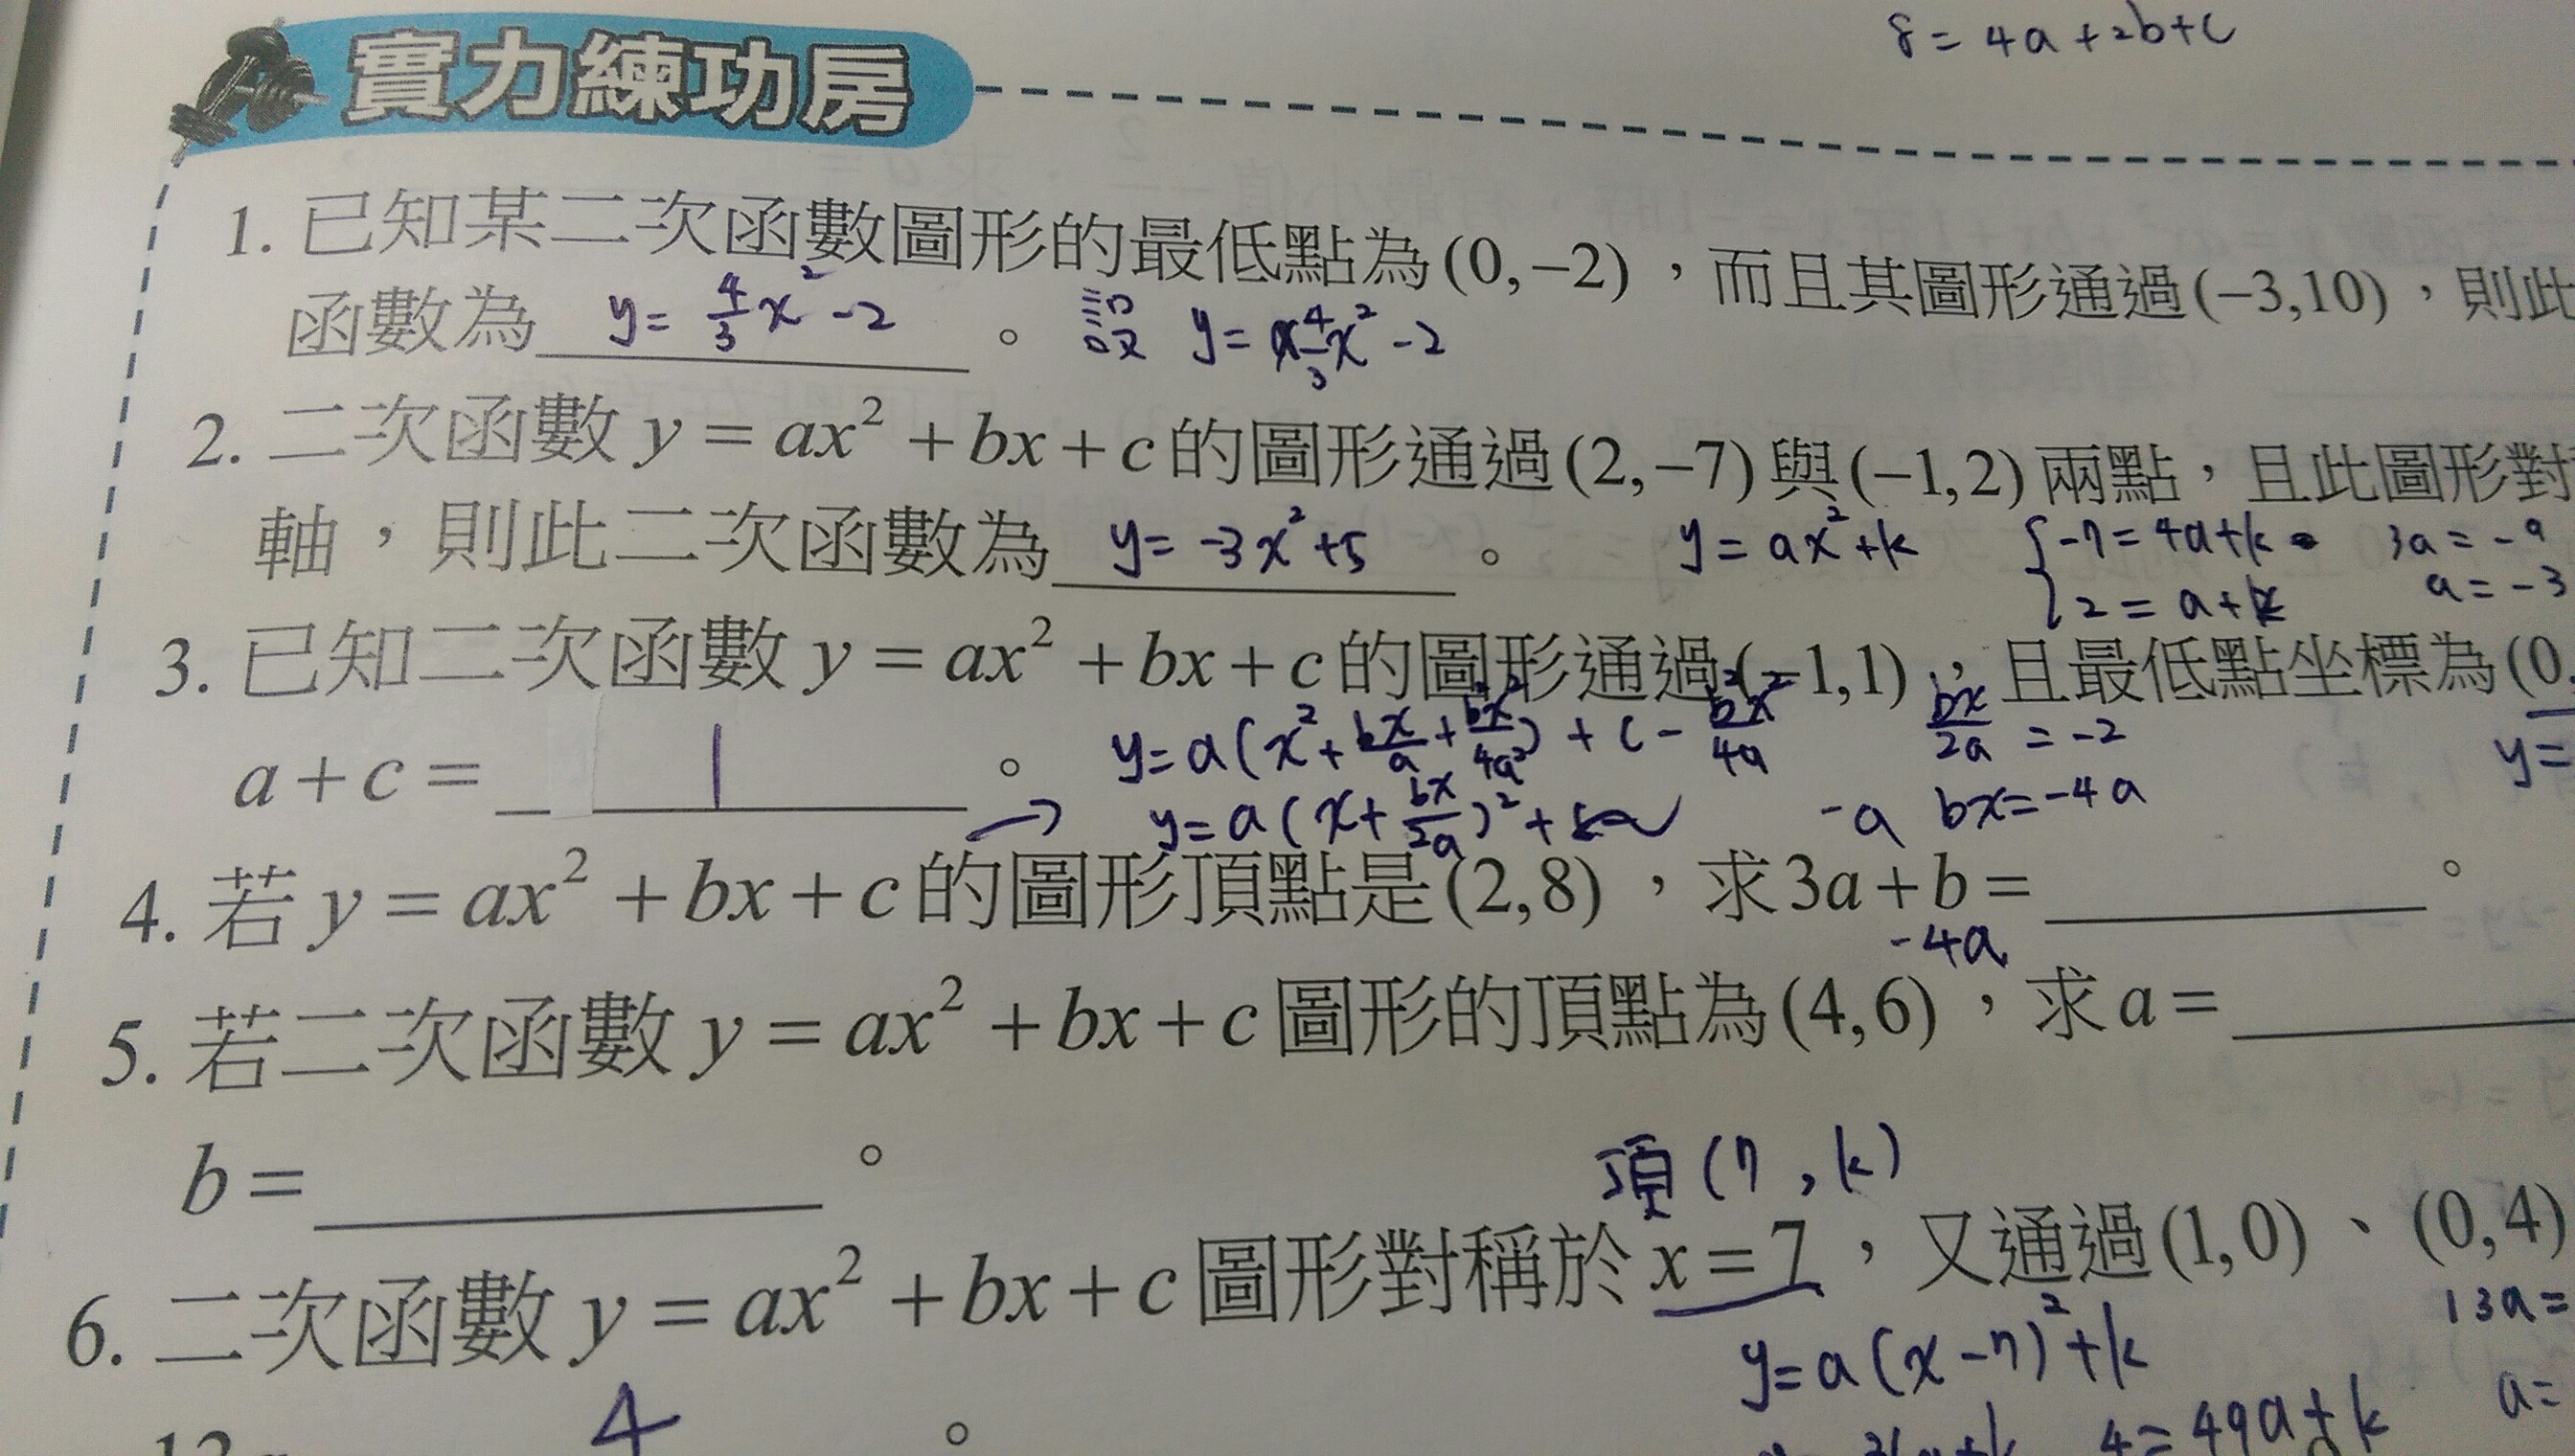 8 = 4a + 2b + c
實力練功房
1. 已知某二次函數圖形的最低點為(0,−2)，而且其圖形通過(−3,10)，則此
函數為 y = 4/3 x² - 2 。 設 y = 4/3 x² - 2
2. 二次函數 y = ax² + bx + c 的圖形通過(2,−7)與(−1,2)兩點，且此圖形對
軸，則此二次函數為 y = -3x² + 5 。 y = ax² + k { -7 = 4a + k 3a = -9
2 = a + k a = -3
3. 已知二次函數 y = ax² + bx + c 的圖形通過(−1,1)，且最低點坐標為(0,
a + c = 1 。 y = a(x² + bx/a + b²x²/4a²) + c - b²x²/4a bx/2a = -2 y =
→ y = a(x + bx/2a)² + -a bx = -4a
4. 若 y = ax² + bx + c 的圖形頂點是(2,8)，求3a + b = 。
-4a
5. 若二次函數 y = ax² + bx + c 圖形的頂點為(4,6)，求 a =
b = 。
頂(7, k)
6. 二次函數 y = ax² + bx + c 圖形對稱於 x = 7，又通過(1,0)、(0,4)
13a =
y = a(x - 7)² + k
a =
4 。 4 = 49a + k